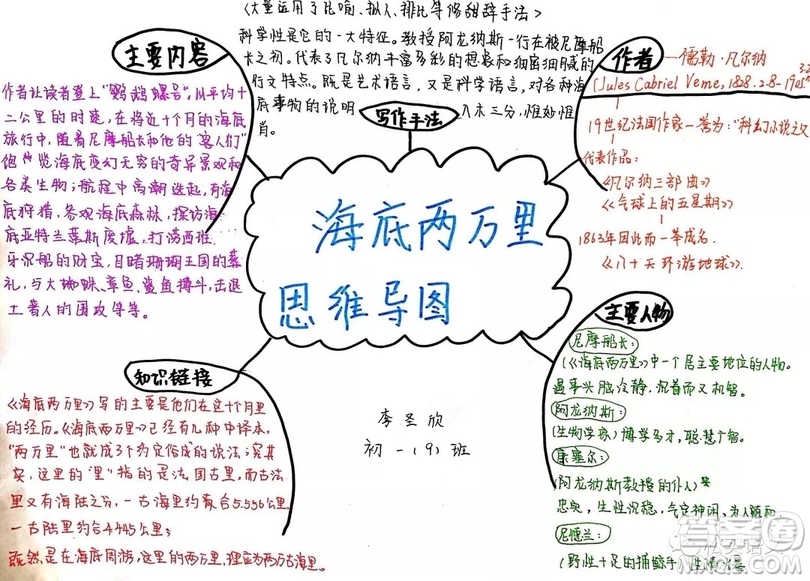 海底两万里
思维导图
李圣欣
初一(9)班
主要内容
作者让读者登上"鹦鹉螺号",以平均十
二公里的时速,在将近十个月的海底
旅行中,随着尼摩船长和他的"客人们"
饱览海底变幻无穷的奇异景观和
各类生物;航程中高潮迭起,有海
底狩猎,参观海底森林,探访海
底亚特兰蒂斯废墟,打捞西班
牙沉船的财宝,目睹珊瑚王国的葬
礼,与大蜘蛛、章鱼、鲨鱼搏斗,击退
土著人的围攻等等。
写作手法
<大量运用了比喻、拟人、排比等修辞手法>
科学性是它的一大特征。教授阿龙纳斯一行在被尼摩船
长之初。代表了凡尔纳丰富多彩的想象和细密细腻的
行文特点。既是艺术语言,又是科学语言,对各种海
底事物的说明入木三分,惟妙惟
肖。
作者
儒勒·凡尔纳
(Jules Cabriel Verne,1828.2.8-1905
19世纪法国作家一誉为:"科幻小说之父
代表作品:
《凡尔纳三部曲》
《气球上的五星期》
1863年因此而一举成名.
《八十天环游地球》.
主要人物
尼摩船长:
(《海底两万里》中一个居主要地位的人物。
遇事头脑冷静,沉着而又机智。
阿龙纳斯:
(生物学家)博学多才,聪慧广智。
康塞尔:
(阿龙纳斯教授的仆人)
忠实,生性沉稳,气定神闲,为人随和
尼德兰:
(野性十足的捕鲸手
知识链接
《海底两万里》写的主要是他们在这十个月里
的经历。《海底两万里》已经有几种中译本,
"两万里"也就成了约定俗成的说法;究其
实,这里的"里"指的是法国古里,而古法
里又有海陆之分,一古海里约合5.556公里
一古陆里约合4.445公里;
既然是在海底周游,这里的两万里,理应为两万古海里。
答案圈